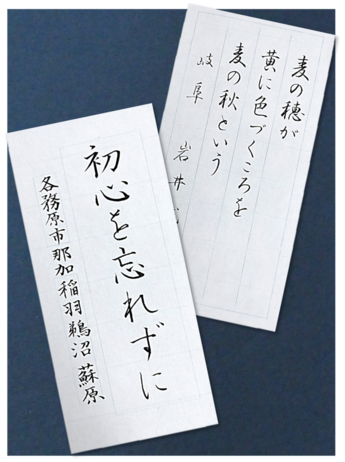 麦の穂が
黄に色づくころを
麦の秋という
岐阜 岩井
初心を忘れずに
各務原市那加稲羽鵜沼 蘇原